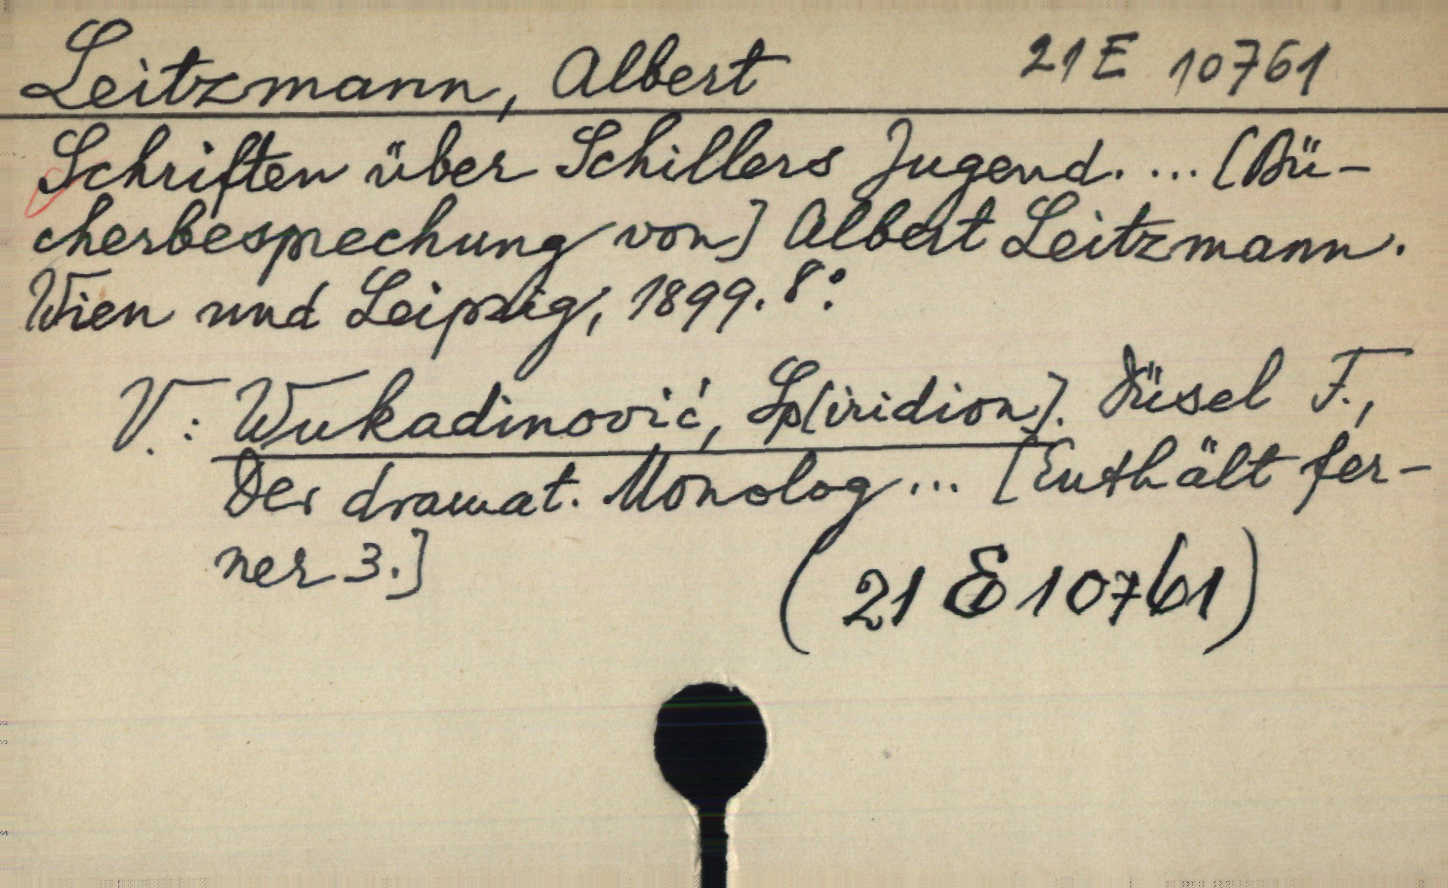 Leitzmann, Albert 21 E 10761
Schriften über Schillers Jugend. ... [Bü-
cherbesprechung von] Albert Leitzmann.
Wien und Leipzig, 1899. 8°.
V.: Wukadinović, Sp[iridion]. Düsel F.,
Der dramat. Monolog ... [Enthält fer-
ner 3.]
(21 E 10761)